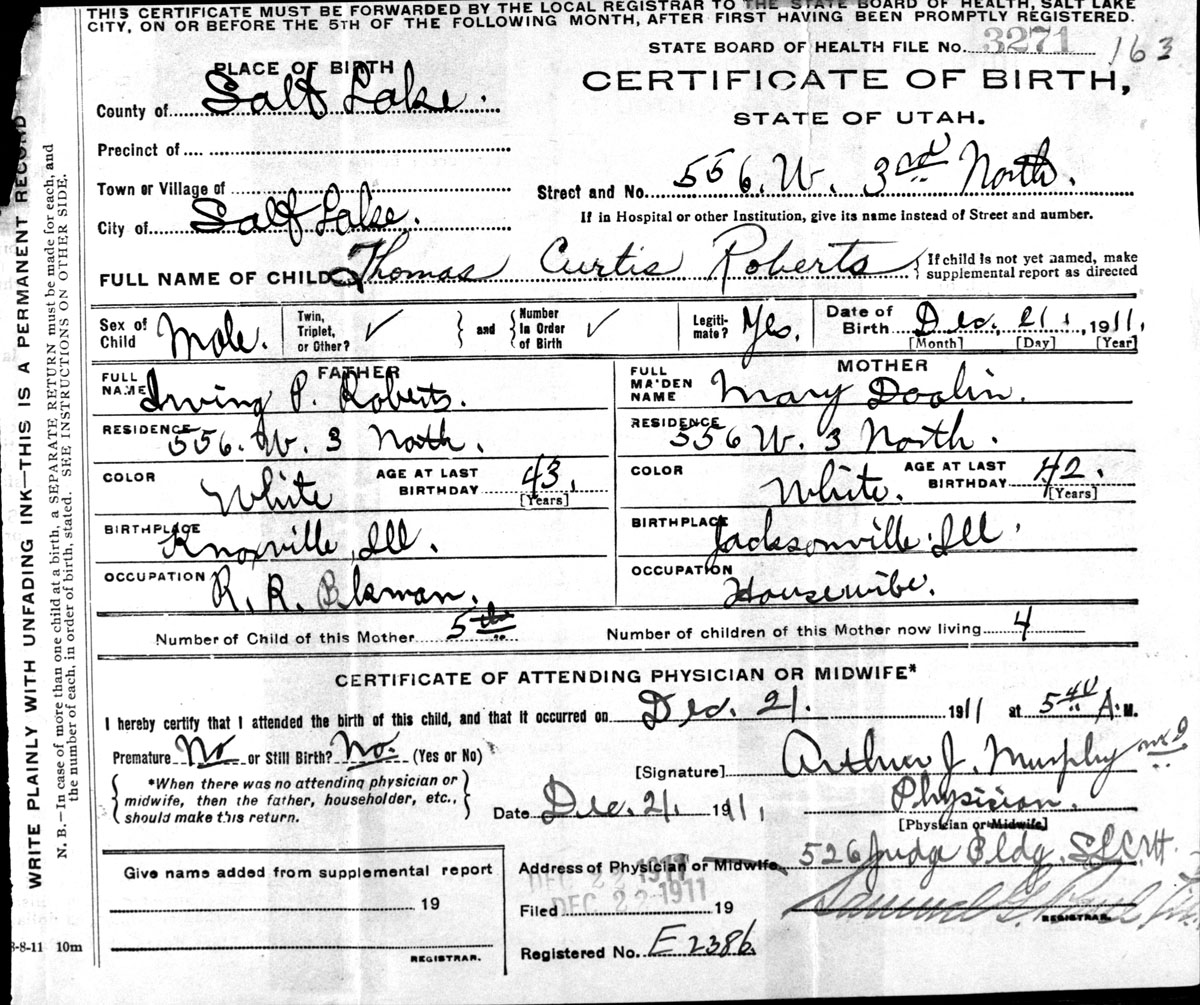 THIS CERTIFICATE MUST BE FORWARDED BY THE LOCAL REGISTRAR TO THE STATE BOARD OF HEALTH, SALT LAKE
CITY, ON OR BEFORE THE 5TH OF THE FOLLOWING MONTH, AFTER FIRST HAVING BEEN PROMPTLY REGISTERED.
STATE BOARD OF HEALTH FILE No. 3271 163
PLACE OF BIRTH
CERTIFICATE OF BIRTH,
County of Salt Lake.
STATE OF UTAH.
Precinct of
Town or Village of
Street and No. 556. W. 3rd North.
City of Salt Lake.
If in Hospital or other Institution, give its name instead of Street and number.
FULL NAME OF CHILD Thomas Curtis Roberts { If child is not yet named, make supplemental report as directed
Sex of Child Male.
Twin, Triplet, or Other? ✓ } and { Number In Order of Birth ✓
Legitimate? Yes.
Date of Birth Dec. 21, 1911,
[Month] [Day] [Year]
FATHER
FULL NAME Irving P. Roberts.
RESIDENCE 556. W. 3 North.
COLOR White AGE AT LAST BIRTHDAY 43, [Years]
BIRTHPLACE Knoxville, Ill.
OCCUPATION R. R. Bkman.
MOTHER
FULL MAIDEN NAME Mary Doolin.
RESIDENCE 556 W. 3 North.
COLOR White. AGE AT LAST BIRTHDAY 42. [Years]
BIRTHPLACE Jacksonville Ill
OCCUPATION Housewife.
Number of Child of this Mother 5th
Number of children of this Mother now living 4
CERTIFICATE OF ATTENDING PHYSICIAN OR MIDWIFE*
I hereby certify that I attended the birth of this child, and that it occurred on Dec. 21. 1911 at 5 40 A. M.
Premature No or Still Birth? No. (Yes or No)
[Signature] Arthur J. Murphy MD
{ *When there was no attending physician or midwife, then the father, householder, etc., should make this return. }
Date Dec. 21, 1911,
Physician.
[Physician or Midwife]
Give name added from supplemental report
19
REGISTRAR.
Address of Physician or Midwife 526 Judge Bldg. S.L.C. Ut.
DEC 22 1911
Filed DEC 22 1911 19
Samuel G. Paul
REGISTRAR.
Registered No. E 2386
8-8-11 10m
WRITE PLAINLY WITH UNFADING INK—THIS IS A PERMANENT RECORD
N. B.—In case of more than one child at a birth, a SEPARATE RETURN must be made for each, and
the number of each, in order of birth, stated. SEE INSTRUCTIONS ON OTHER SIDE.